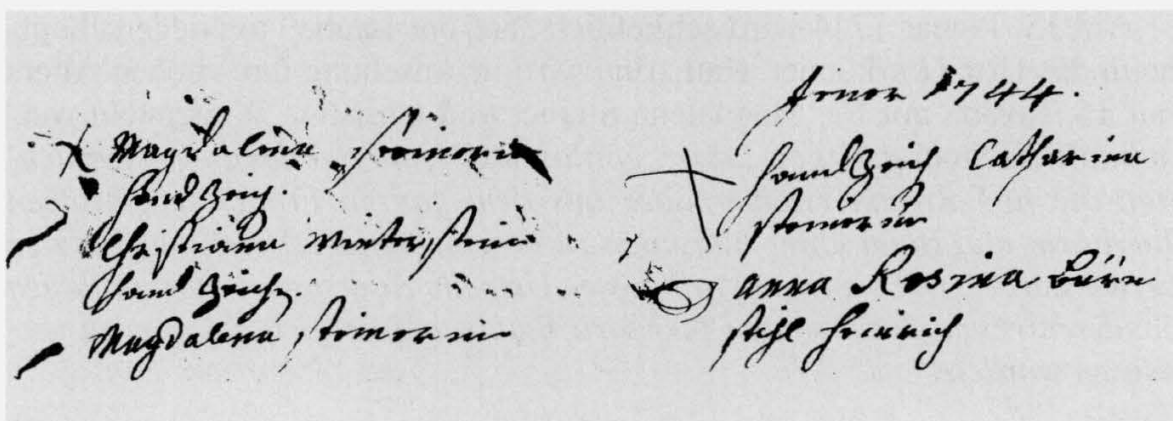 Magdalena steinerin
hand Zeich.
Christiana Winterstein
hand Zeich.
Magdalena steinerin
Jener 1744.
hand Zeich Catharina
steinerin
anna Rosina